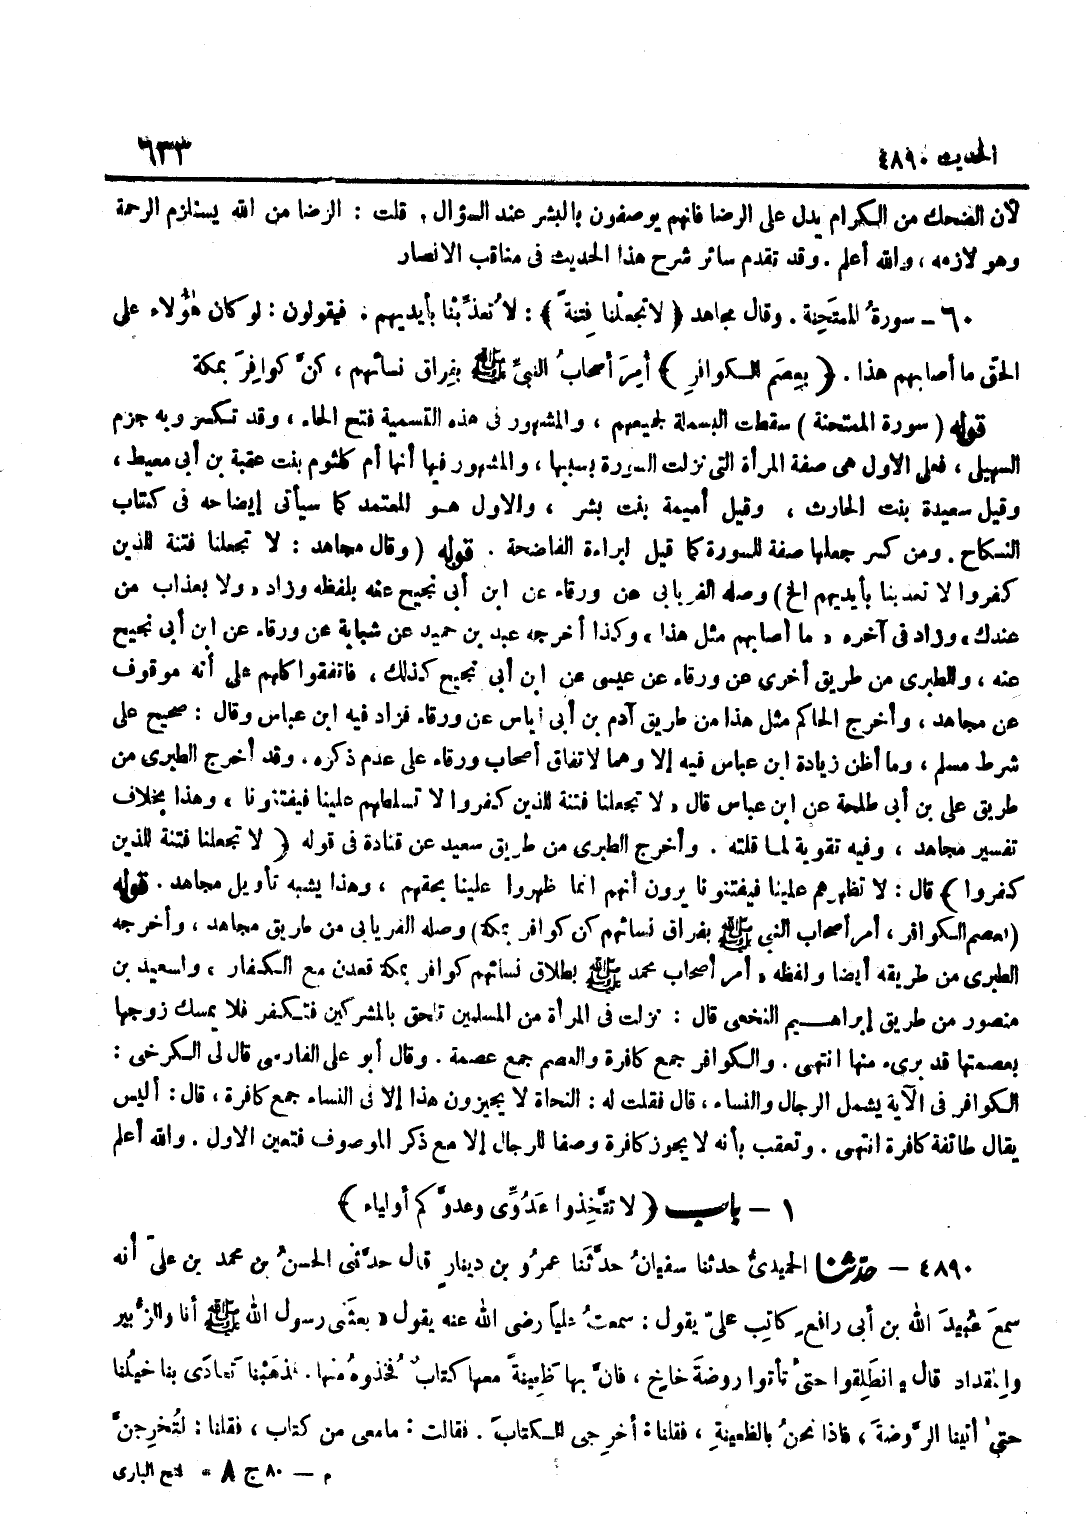 الحديث ٤٨٩٠
٦٣٣
لأن الضحك من الكرام يدل على الرضا فانهم يوصفون بالبشر عند السؤال . قلت : الرضا من الله يستلزم الرحمة
وهو لازمه ، والله أعلم . وقد تقدم سائر شرح هذا الحديث فى مناقب الانصار
٦٠ - سورةُ الممتَحِنة . وقال مجاهد ﴿ لا تجعلْنا فِتنةً ﴾ : لا تُعذِّبْنا بأيديهم ، فيقولون : لو كان هٰؤلاء على
الحقّ ما أصابهم هذا . ﴿ بعِصَم الكوافرِ ﴾ أُمِرَ أصحابُ النبيِّ ﷺ بفِراق نسائهم ، كنَّ كوافِرَ بمكة
قوله ( سورة الممتحنة ) سقطت البسملة لجميعهم ، والمشهور فى هذه التسمية فتح الحاء ، وقد تكسر وبه جزم
السهيلى ، فعلى الاول هى صفة المرأة التى نزلت السورة بسببها ، والمشهور فيها أنها أم كلثوم بنت عقبة بن أبى معيط ،
وقيل سعيدة بنت الحارث ، وقيل أميمة بنت بشر ، والاول هو المعتمد كما سيأتى إيضاحه فى كتاب
النكاح . ومن كسر جعلها صفة للسورة كما قيل لبراءة الفاضحة . قوله ( وقال مجاهد : لا تجعلنا فتنة للذين
كفروا لا تعذبنا بأيديهم الخ ) وصله الفريابى عن ورقاء عن ابن أبى نجيح عنه بلفظه وزاد « ولا بعذاب من
عندك » وزاد فى آخره « ما أصابهم مثل هذا » وكذا أخرجه عبد بن حميد عن شبابة عن ورقاء عن ابن أبى نجيح
عنه ، والطبرى من طريق أخرى عن ورقاء عن عيسى عن ابن أبى نجيح كذلك ، فاتفقوا كلهم على أنه موقوف
عن مجاهد ، وأخرج الحاكم مثل هذا من طريق آدم بن أبى اياس عن ورقاء فزاد فيه ابن عباس وقال : صحيح على
شرط مسلم ، وما أظن زيادة ابن عباس فيه إلا وهما لاتفاق أصحاب ورقاء على عدم ذكره . وقد أخرج الطبرى من
طريق على بن أبى طلحة عن ابن عباس قال « لا تجعلنا فتنة للذين كفروا لا تسلطهم علينا فيفتنونا » وهذا بخلاف
تفسير مجاهد ، وفيه تقوية لما قلته . وأخرج الطبرى من طريق سعيد عن قتادة فى قوله ﴿ لا تجعلنا فتنة للذين
كفروا ﴾ قال : لا تظهرهم علينا فيفتنونا يرون أنهم انما ظهروا علينا بحقهم ، وهذا يشبه تأويل مجاهد . قوله
( بعصم الكوافر ، أمر أصحاب النبى ﷺ بفراق نسائهم كن كوافر بمكة ) وصله الفريابى من طريق مجاهد ، وأخرجه
الطبرى من طريقه أيضا ولفظه « أمر أصحاب محمد ﷺ بطلاق نسائهم كوافر بمكة قعدن مع الكفار » ولسعيد بن
منصور من طريق إبراهيم النخعى قال : نزلت فى المرأة من المسلمين تلحق بالمشركين فتكفر فلا يمسك زوجها
بعصمتها قد برىء منها انتهى . والكوافر جمع كافرة والعصم جمع عصمة . وقال أبو على الفارسى قال لى الكرخى :
الكوافر فى الآية يشمل الرجال والنساء ، قال فقلت له : النحاة لا يجيزون هذا إلا فى النساء جمع كافرة ، قال : أليس
يقال طائفة كافرة انتهى . وتعقب بأنه لا يجوز كافرة وصفا للرجال إلا مع ذكر الموصوف فتعين الاول . والله أعلم
١ - باب ﴿ لا تتَّخِذوا عَدُوِّى وعدوَّكم أولياء ﴾
٤٨٩٠ - حدّثنا الحميدىُّ حدثنا سفيانُ حدَّثَنا عمرُو بن دينارٍ قال حدَّثنى الحسنُ بن محمد بن علىّ أنه
سمعَ عُبيدَ الله بن أبى رافعٍ كاتِب علىّ يقول : سمعتُ علياً رضى الله عنه يقول « بعثَنى رسول الله ﷺ أنا والزُّبير
والمقداد قال : انطَلِقوا حتىٰ تأتوا روضةَ خاخٍ ، فانَّ بها ظَعِينةً معها كتابٌ فخُذوهُ منها . فذهَبْنا تَعادَى بنا خيلُنا
حتىٰ أتينا الرَّوضةَ ، فاذا نحنُ بالظعينةِ ، فقلنا : أخرِجى الكتابَ . فقالت : مامعى من كتاب ، فقلنا : لتُخرِجنَّ
م — ٨٠ ج ٨ * فتح البارى